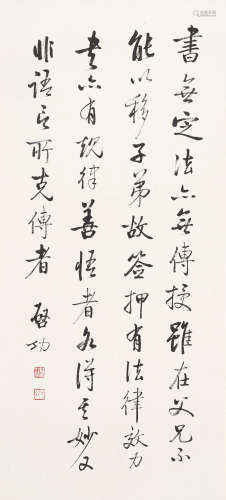 書無定法亦無傳授雖在父兄不
能以移子弟故簽押有法律效力
書亦有規律善悟者各得其妙又
非語言所克傳者 啓功